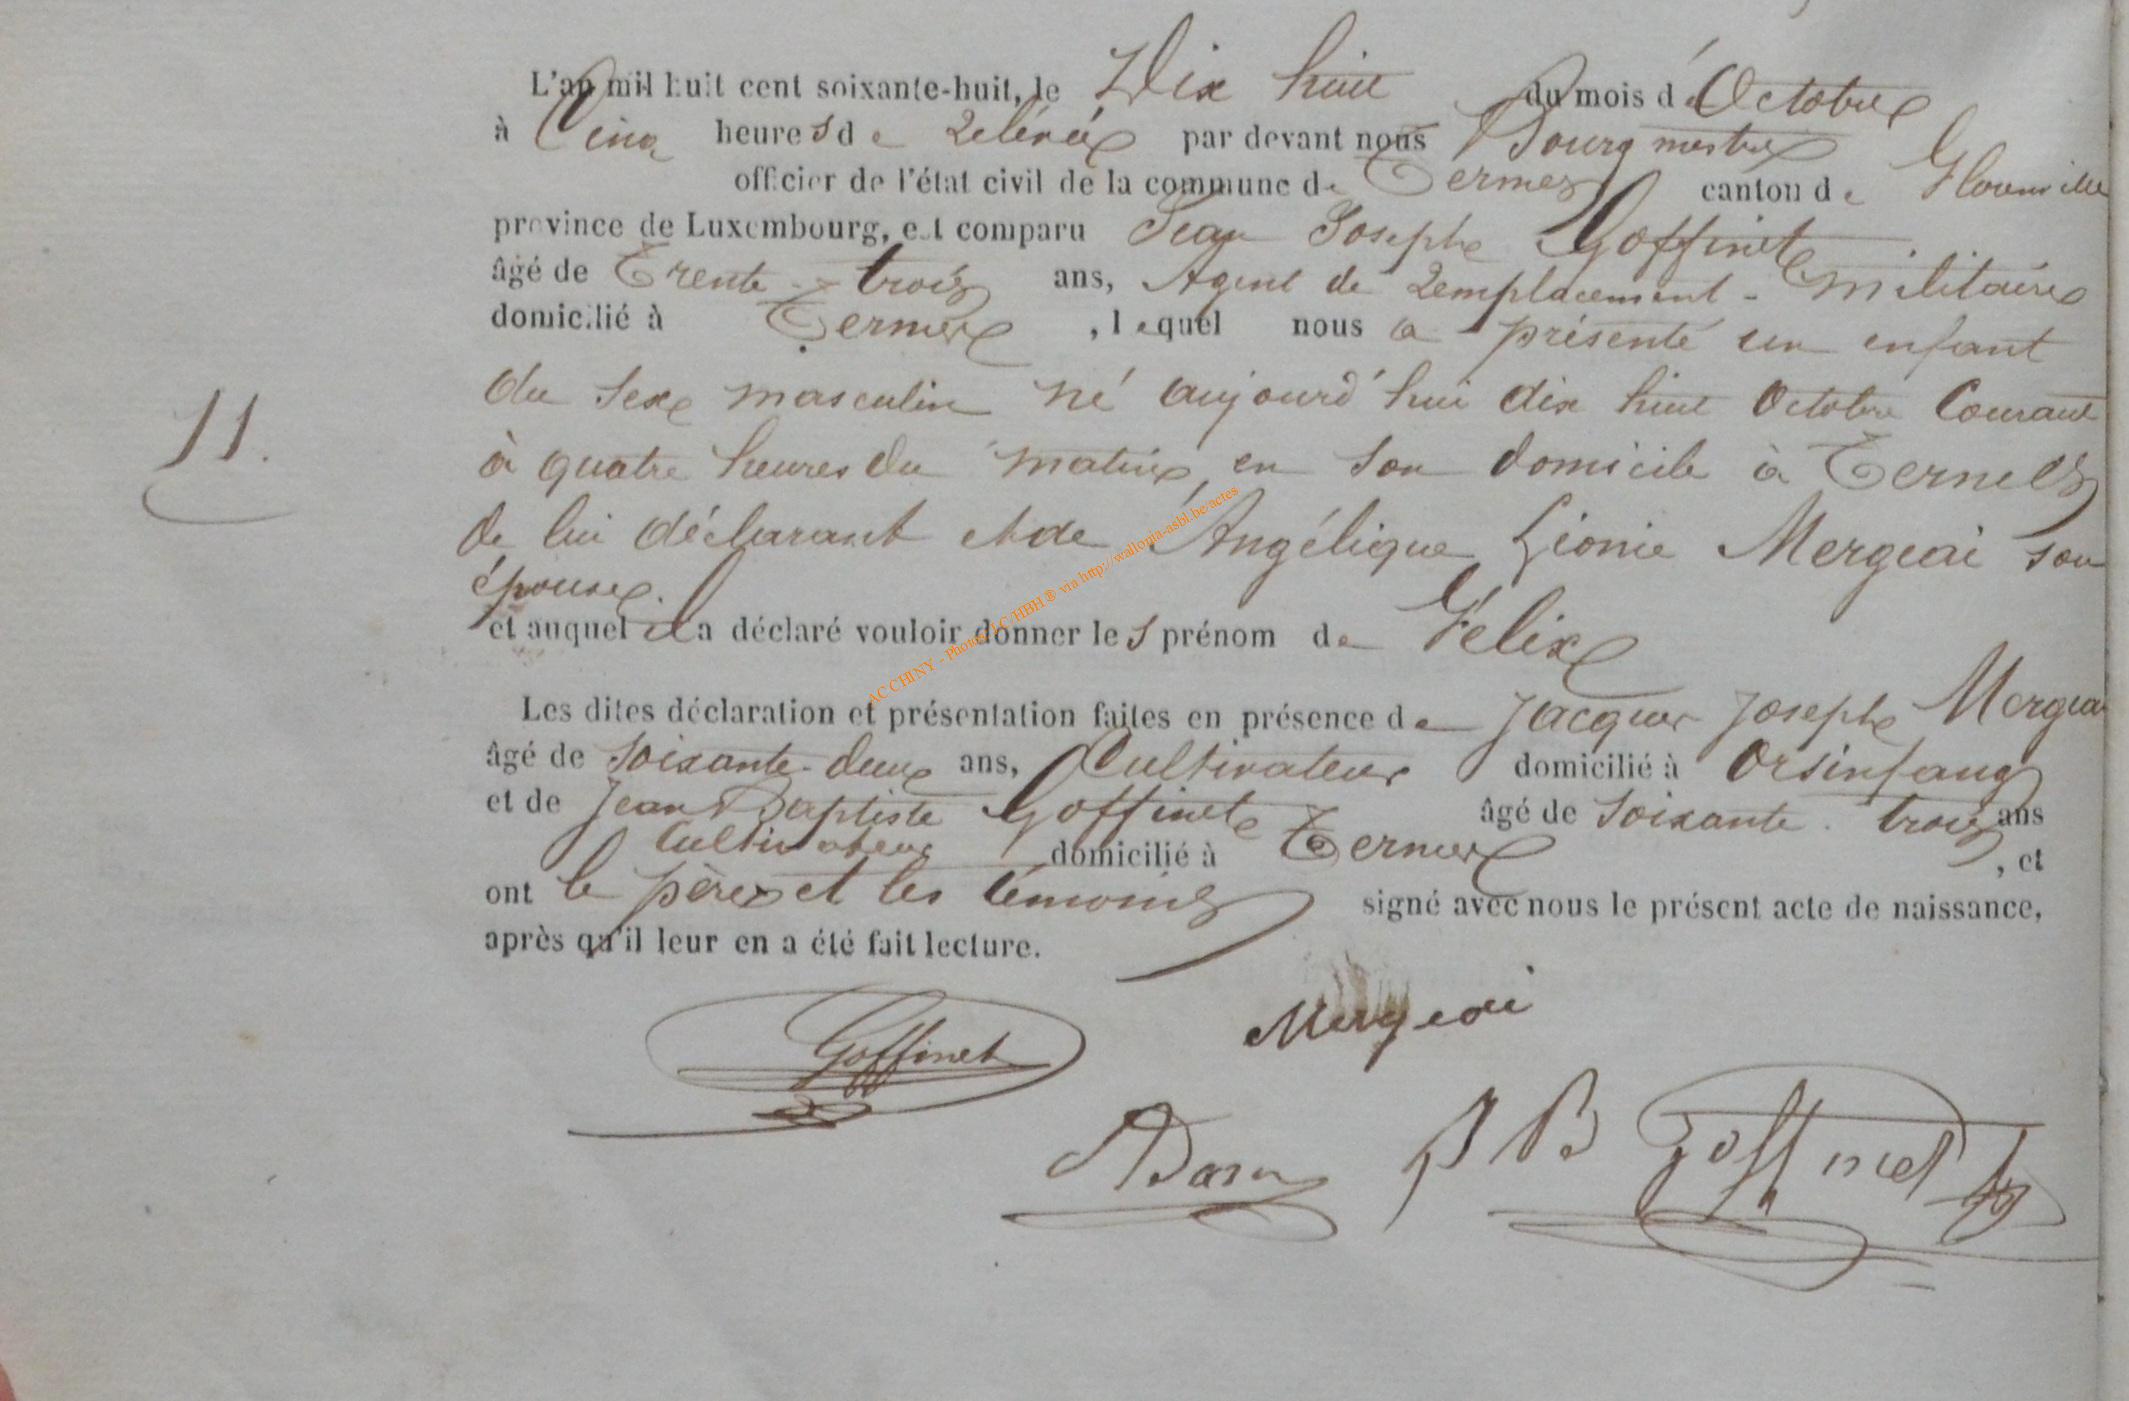 L'an mil huit cent soixante-huit, le Dix huit du mois d'Octobre
à Cinq heures de relevée par devant nous Bourgmestre
officier de l'état civil de la commune de Termes canton de Florenville
province de Luxembourg, est comparu Jean Joseph Goffinet
âgé de Trente-trois ans, Agent de remplacement-militaire
domicilié à Termes, lequel nous a présenté un enfant
du sexe masculin né aujourd'hui dix huit Octobre Courant
11. à quatre heures du matin, en son domicile à Termes
de lui déclarant et de Angélique Lionie Mergeai son
épouse.
et auquel il a déclaré vouloir donner les prénom de Félix
Les dites déclaration et présentation faites en présence de Jacques Joseph Mergeai
âgé de soixante-deux ans, Cultivateur domicilié à Orsinfaing
et de Jean Baptiste Goffinet âgé de soixante-trois ans
Cultivateur domicilié à Termes, et
ont le père et les témoins signé avec nous le présent acte de naissance,
après qu'il leur en a été fait lecture.
Goffinet Mergeai
JB Goffinet
AC CHINY - Photos LC/HBH ® via http://wallonia-asbl.be/actes